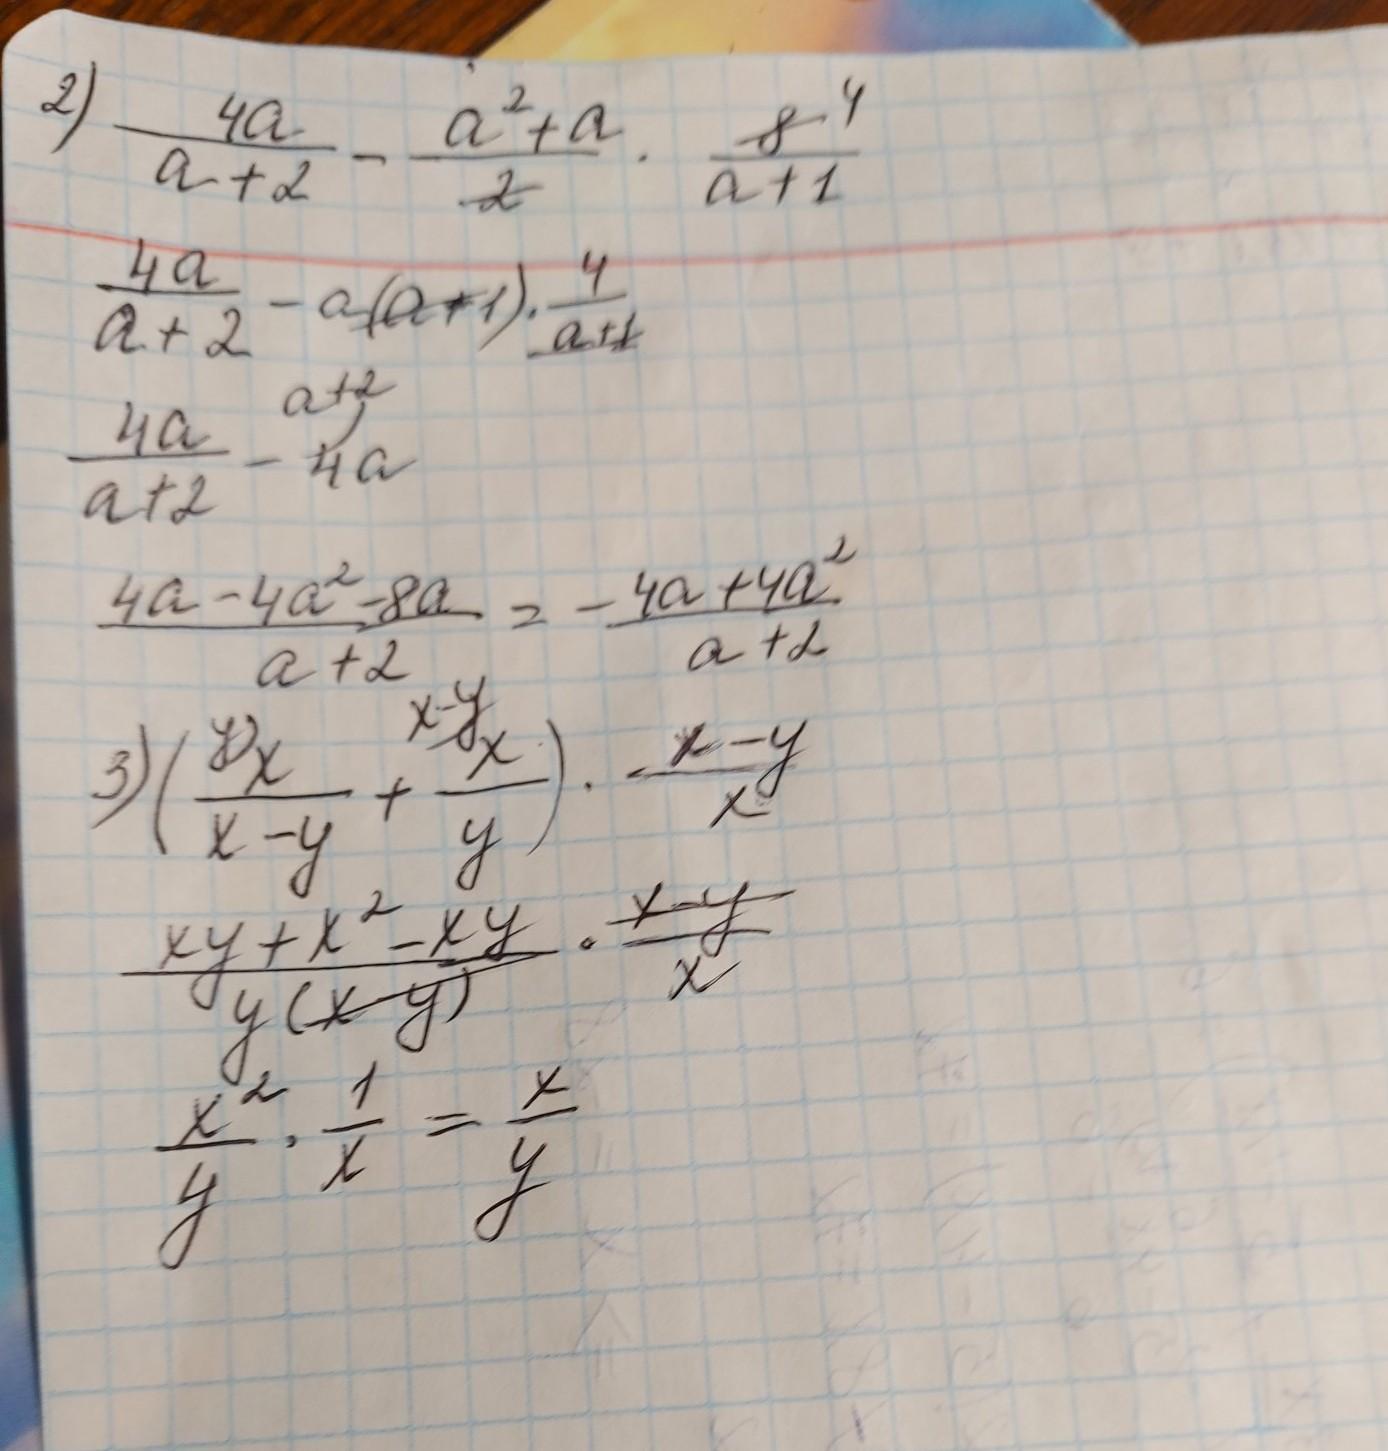 2) 4a/(a+2) - (a²+a)/2 · 8/(a+1) 4
4a/(a+2) - a(a+1) · 4/(a+1)
a+2
4a/(a+2) - 4a
(4a-4a²-8a)/(a+2) = -(4a+4a²)/(a+2)
y) x-y
3) (x/(x-y) + x/y) · (x-y)/x
(xy+x²-xy)/(y(x-y)) · (x-y)/x
x²/y · 1/x = x/y